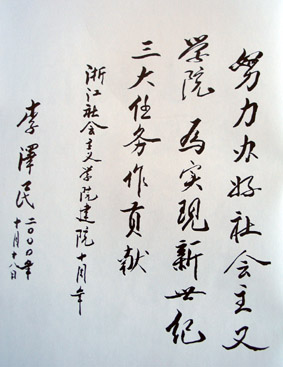 努力办好社会主义
学院 为实现新世纪
三大任务作贡献
浙江社会主义学院建院十周年
李泽民 二〇〇〇年
十月十八日